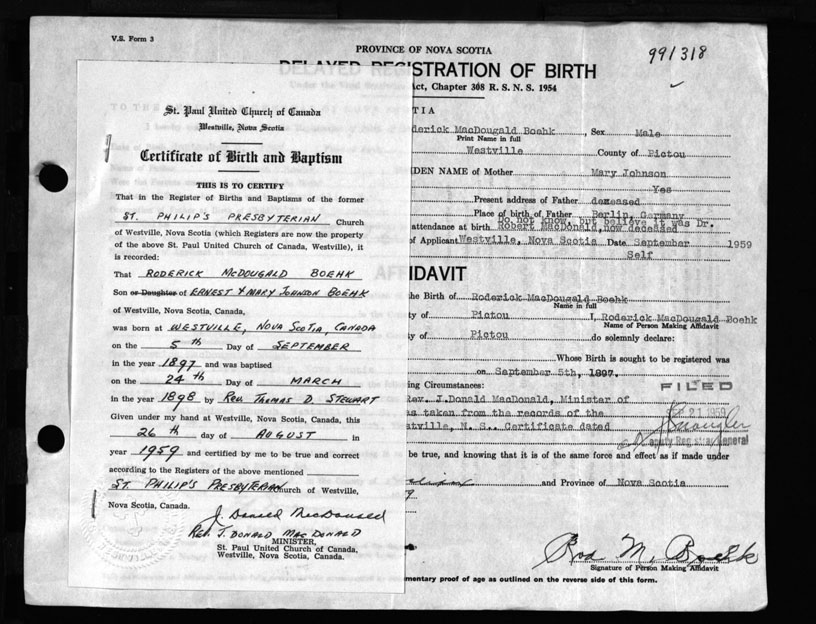 V.S. Form 3
PROVINCE OF NOVA SCOTIA
991318
DELAYED REGISTRATION OF BIRTH
Act, Chapter 308 R. S. N. S. 1954
St. Paul United Church of Canada
Westville, Nova Scotia
Certificate of Birth and Baptism
THIS IS TO CERTIFY
That in the Register of Births and Baptisms of the former
ST. PHILIP'S PRESBYTERIAN Church
of Westville, Nova Scotia (which Registers are now the property
of the above St. Paul United Church of Canada, Westville), it
is recorded:
That RODERICK McDOUGALD BOEHK
Son or Daughter of ERNEST & MARY JOHNSON BOEHK
of Westville, Nova Scotia, Canada,
was born at WESTVILLE, NOVA SCOTIA, CANADA
on the 5th Day of SEPTEMBER
in the year 1897 and was baptised
on the 24th Day of MARCH
in the year 1898 by REV. THOMAS D. STEWART
Given under my hand at Westville, Nova Scotia, Canada, this
26th day of AUGUST in
year 1959 and certified by me to be true and correct
according to the Registers of the above mentioned
ST. PHILIP'S PRESBYTERIAN Church of Westville,
Nova Scotia, Canada.
J. Donald MacDonald
REV. J. DONALD MACDONALD
MINISTER,
St. Paul United Church of Canada,
Westville, Nova Scotia, Canada.
OTIA
derick MacDougald Boehk, Sex Male
Print Name in full
Westville County of Pictou
DEN NAME of Mother Mary Johnson
Yes
Present address of Father deceased
Place of birth of Father Berlin, Germany
Do not know, but believe it was Dr.
attendance at birth Robert MacDonald, now deceased
of Applicant Westville, Nova Scotia Date September 1959
Self
AFFIDAVIT
the Birth of Roderick MacDougald Boehk
Name in full
ty of Pictou I, Roderick MacDougald Boehk
Name of Person Making Affidavit
y of Pictou do solemnly declare:
Whose Birth is sought to be registered was
on September 5th, 1897.
ing Circumstances:
FILED
Rev. J.Donald MacDonald, Minister of
as taken from the records of the
SEP 21 1959
stville, N. S.. Certificate dated
Deputy Registrar General
be true, and knowing that it is of the same force and effect as if made under
and Province of Nova Scotia
9
Rod M. Boehk
Signature of Person Making Affidavit
mentary proof of age as outlined on the reverse side of this form.